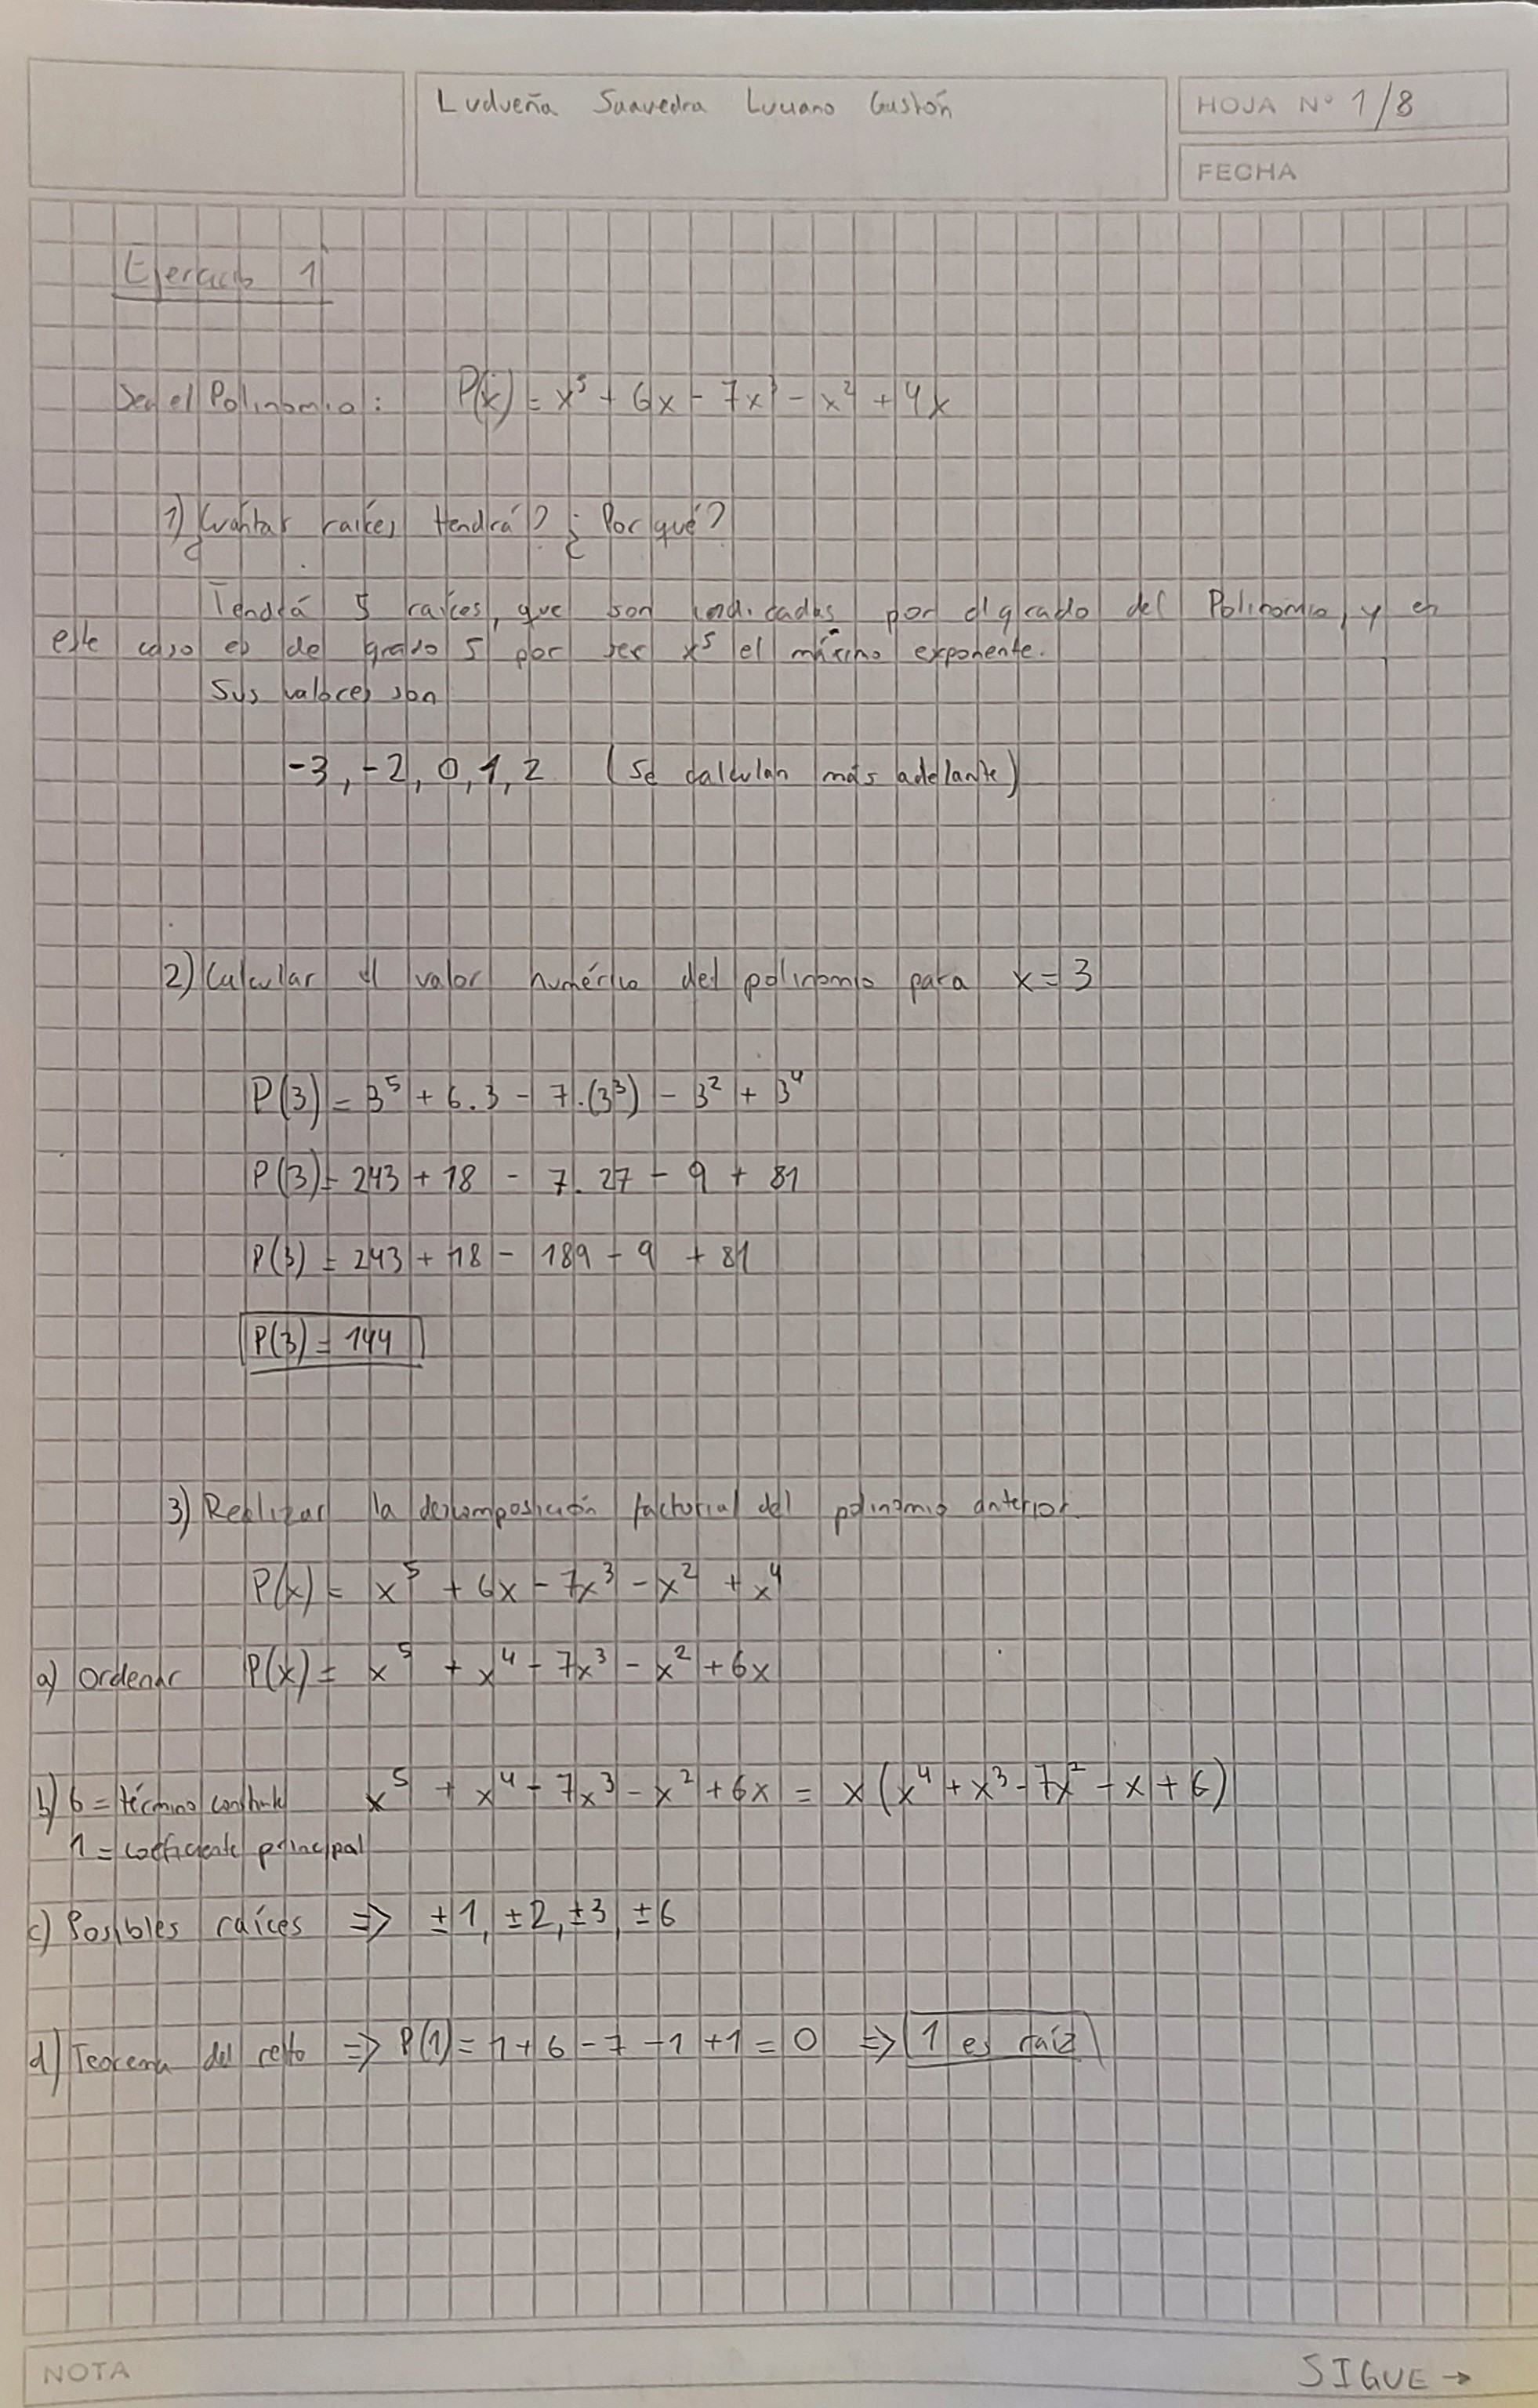 Ludueña Saavedra Luciano Gastón
HOJA Nº 1/8
FECHA
Ejercicio 1
Sea el Polinomio: P(x) = x⁵ + 6x - 7x³ - x² + 4x
1) ¿Cuántas raíces tendrá? ¿Por qué?
Tendrá 5 raíces, que son indicadas por el grado del Polinomio, y en
este caso es de grado 5 por ser x⁵ el máximo exponente.
Sus valores son
-3, -2, 0, 1, 2 (se calculan más adelante)
2) Calcular el valor numérico del polinomio para x = 3
P(3) = 3⁵ + 6.3 - 7.(3³) - 3² + 3⁴
P(3) = 243 + 18 - 7.27 - 9 + 81
P(3) = 243 + 18 - 189 - 9 + 81
P(3) = 144
3) Realizar la descomposición factorial del polinomio anterior.
P(x) = x⁵ + 6x - 7x³ - x² + x⁴
a) Ordenar P(x) = x⁵ + x⁴ - 7x³ - x² + 6x
b) 6 = término constante x⁵ + x⁴ - 7x³ - x² + 6x = x(x⁴ + x³ - 7x² - x + 6)
1 = coeficiente principal
c) Posibles raíces => ±1, ±2, ±3, ±6
d) Teorema del resto => P(1) = 1 + 6 - 7 - 1 + 1 = 0 => 1 es raíz
NOTA
SIGUE →